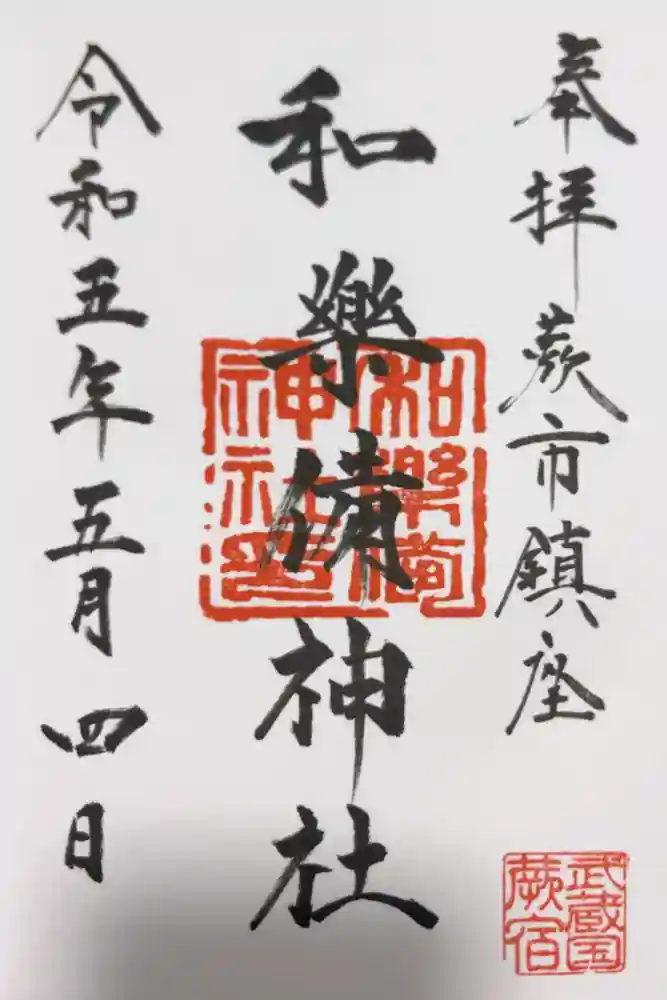 奉拝 蕨市鎮座
和樂備神社
令和五年五月四日
和樂備
神社印
武蔵国
蕨宿